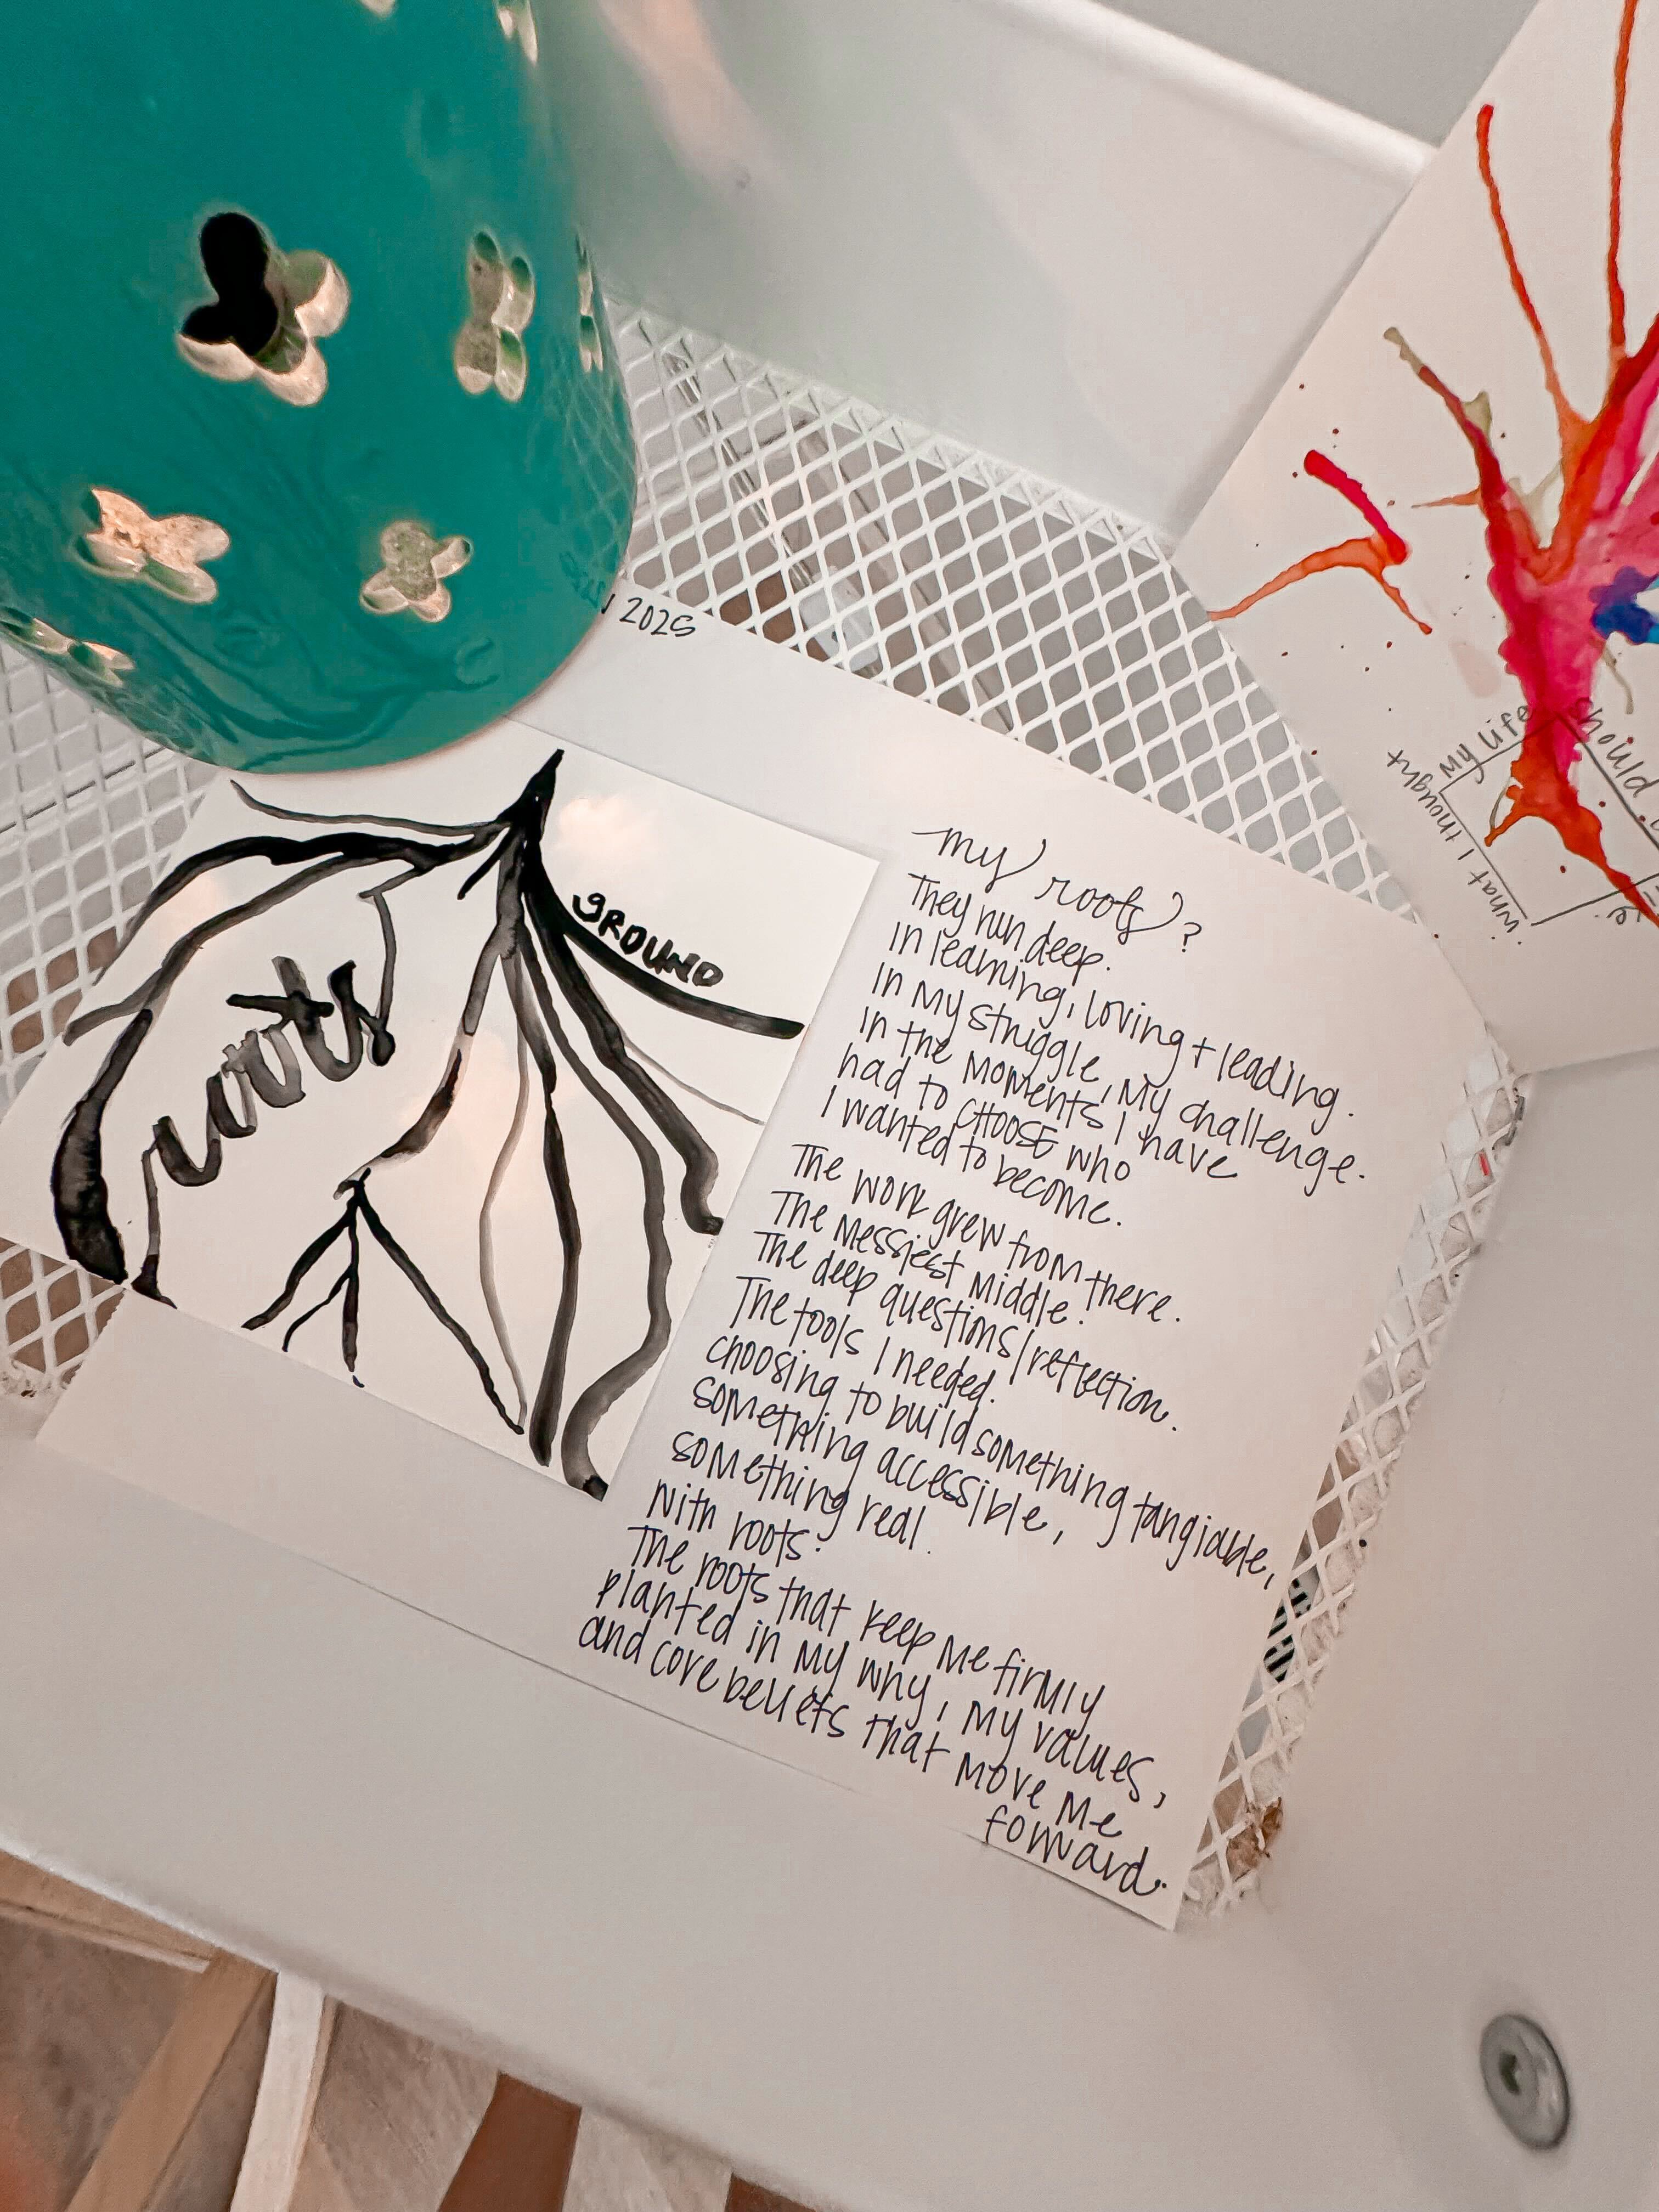 2025
GROUND
roots
my roots?
They run deep.
In learning, loving + leading.
In my struggle, my challenge.
In the moments I have
had to CHOOSE who
I wanted to become.
The work grew from there.
The messiest middle.
The deep questions/reflection.
The tools I needed.
choosing to build something tangiable,
something accessible,
something real.
With roots.
The roots that keep me firmly
planted in my why, my values,
and core beliefs that move me
forward.
My life should
what I thought